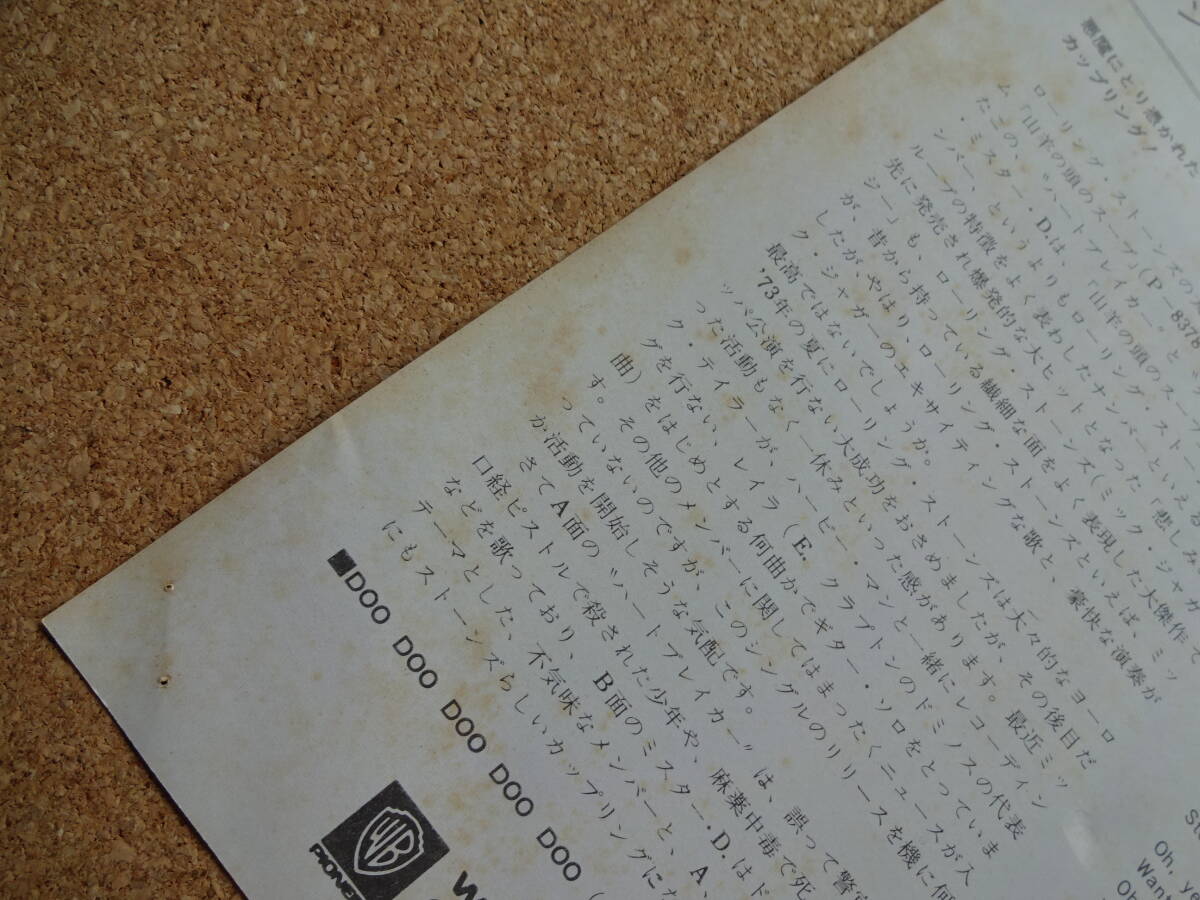 悪魔にとり憑かれた
カップリング!
ローリング・ストーンズの
ム「山羊の頭のスープ」(P-8378
たこの、"ハートブレイカー。と
・ミスター・D.は、「山羊の頭のスー
ンバー、というよりもローリング・ストー
ループの特徴をよく表わしたナンバーといえる
先に発売され爆発的な大ヒットとなった「悲しみ
ジー」も、ローリング・ストーンズ(ミック・ジャガ
が、昔から持っている繊細な面をよく表現した大傑作で
したが、やはり、ローリング・ストーンズといえば、ミッ
ク・ジャガーのエキサイティングな歌と、豪快な演奏が
最高ではないでしょうか。
'73年の夏にローリング・ストーンズは大々的なヨーロ
ッパ公演を行ない大成功をおさめましたが、その後目だ
った活動もなく一休みといった感があります。最近ミッ
ク・テイラーが、ハービー・マンと一緒にレコーディン
グを行ない、レイラ(E. クラプトンのドミノスの代表
曲)をはじめとする何曲かでギター・ソロをとっていま
す。その他のメンバーに関してはまったくニュースが入
っていないのですが、このシングルのリリースを機に何
か活動を開始しそうな気配です。
さてA面の"ハートブレイカー"は、誤って警官
口経ピストルで殺された少年や、麻薬中毒で死
などを歌っており、B面のミスター・D.はド
テーマとした、不気味なメンバーと、A、
にもストーンズらしいカップリングにな
■DOO DOO DOO DOO DOO (
WB
PIONEER
Oh, ye
Want
Oh